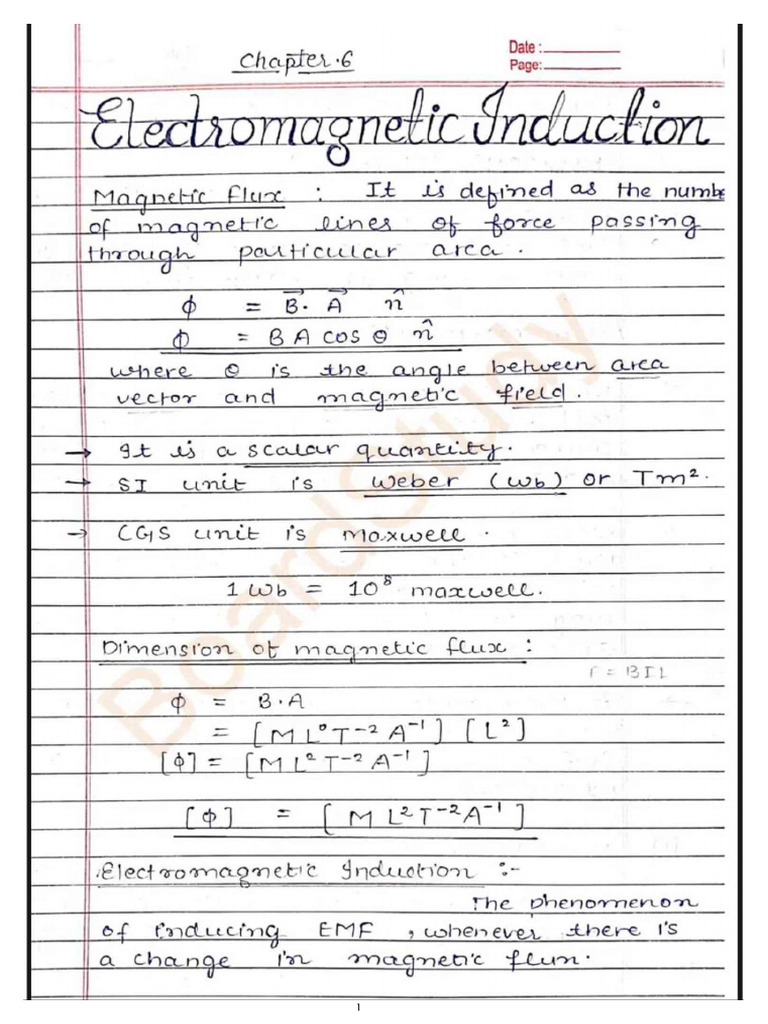 Chapter.6
Date :
Page:
Electromagnetic Induction
Magnetic Flux : It is defined as the numbe
of magnetic lines of force passing
through particular area.
ϕ = B⃗. A⃗ n̂
ϕ = B A cos θ n̂
where θ is the angle between area
vector and magnetic field.
→ It is a scalar quantity.
→ SI unit is Weber (Wb) or Tm².
→ CGS unit is Maxwell.
1 Wb = 10⁸ maxwell.
Dimension of magnetic flux :
F = BIL
ϕ = B.A
= [M L⁰ T⁻² A⁻¹] [L²]
[ϕ] = [M L² T⁻² A⁻¹]
[ϕ] = [M L² T⁻² A⁻¹]
Electromagnetic Induction :-
The phenomenon
of inducing EMF, whenever there is
a change in magnetic flun.
BoardStudy
1